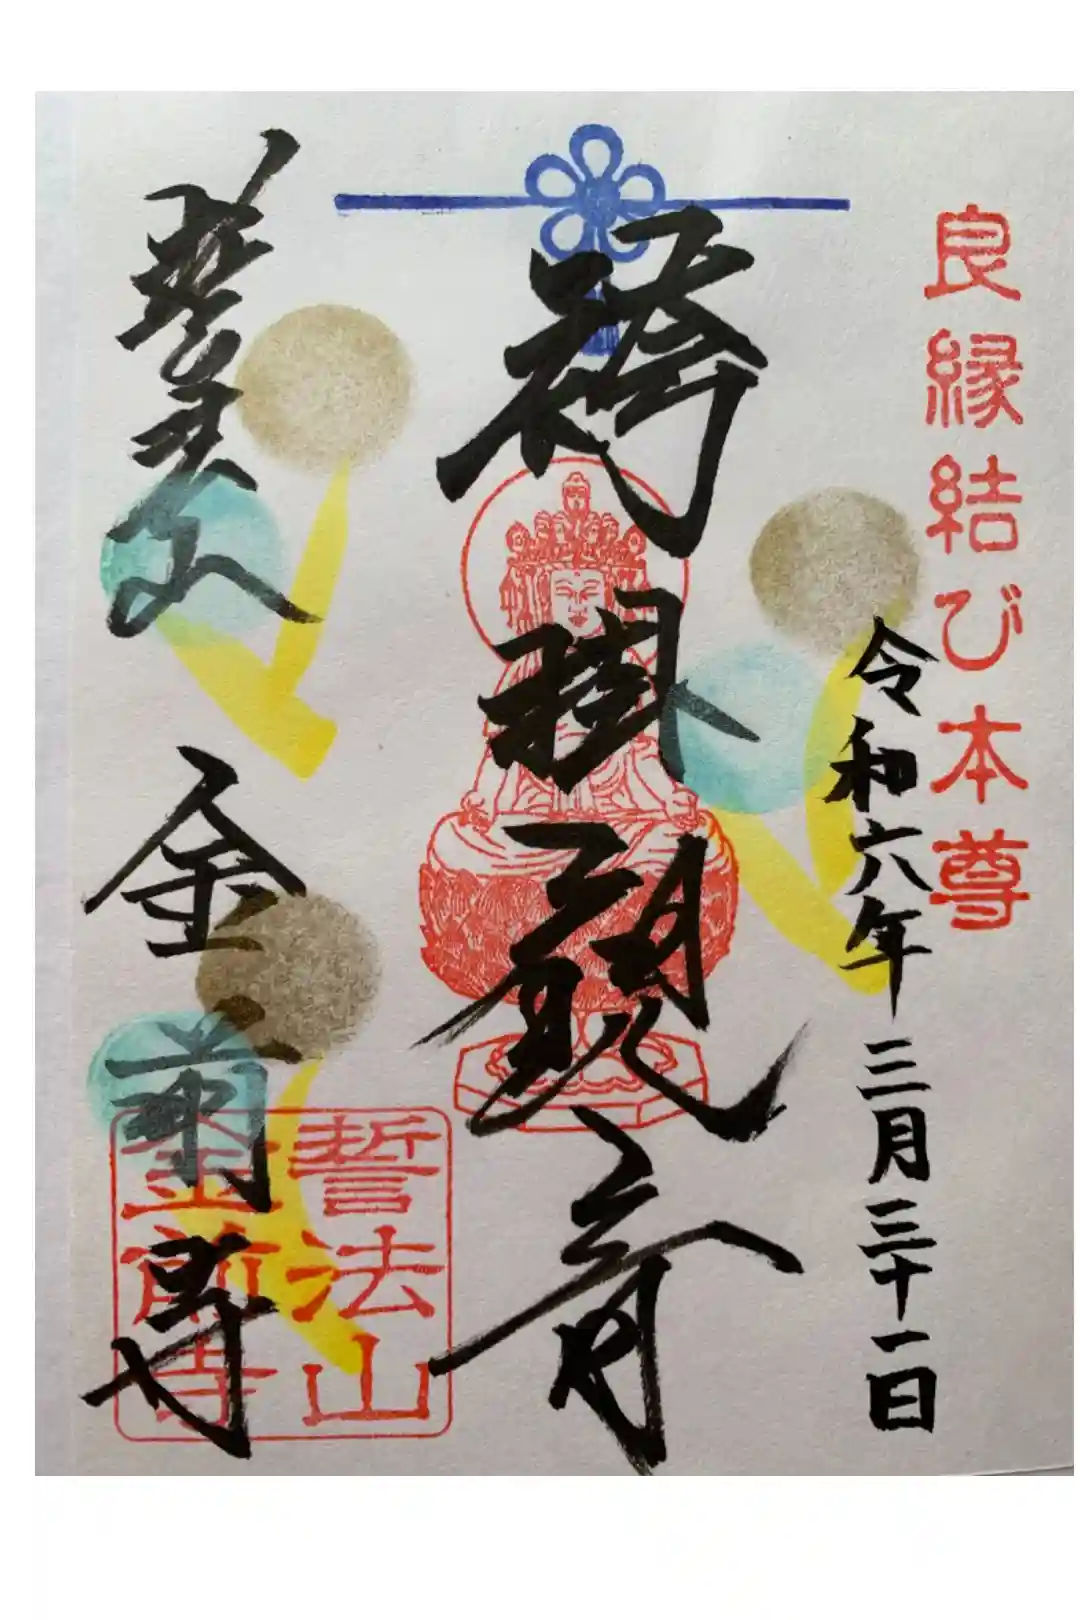 良縁結び本尊
令和六年三月三十一日
袴掛観音
誓法山 金前寺
誓法山
金前寺